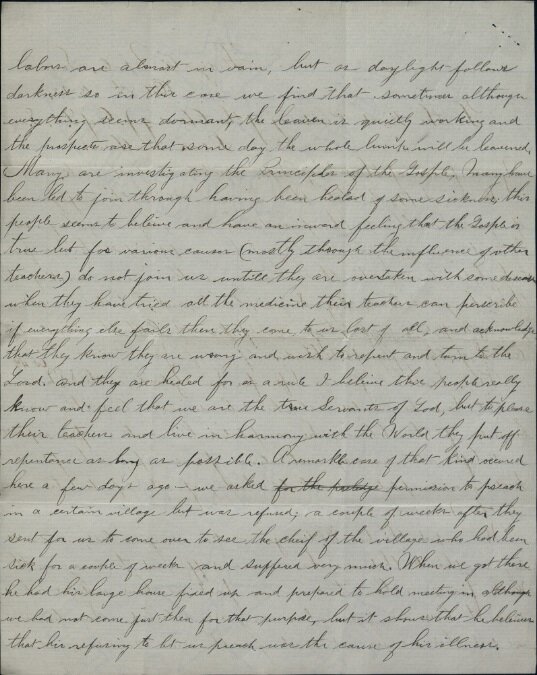 labors are almost in vain, but as daylight follows
darkness so in this case we find that sometimes although
everything seems dormant, the leaven is quietly working and
the prospects are that some day the whole lump will be leavened.
Many are investigating the Principles of the Gosple, Many have
been led to join through having been healed of some sickness, this
people seems to beleive and have an inward feeling that the Gosple is
true but for various causes (mostly through the influence of other
teachers) do not join us untill they are overtaken with some disease
when they have tried all the medicine their teachers can perscribe
if everything else fails then they come to us last of all, and acknowledge
that they know they are wrong and wish to repent and turn to the
Lord. and they are healed for as a rule I beleive this people really
know and feel that we are the true Servants of God, but to please
their teachers and live in harmony with the World they put off
repentance as long as possible. A remarkble case of that kind occured
here a few days ago — we asked for the privilege permission to preach
in a certain village but was refused; a couple of weeks after they
sent for us to come over to see the cheif of the village who had been
sick for a couple of weeks and suffered very much. When we got there
he had his large house fixed up and prepared to hold meeting in although
we had not come just then for that purpose, but it shows that he beleives
that his refusing to let us preach was the cause of his illness.